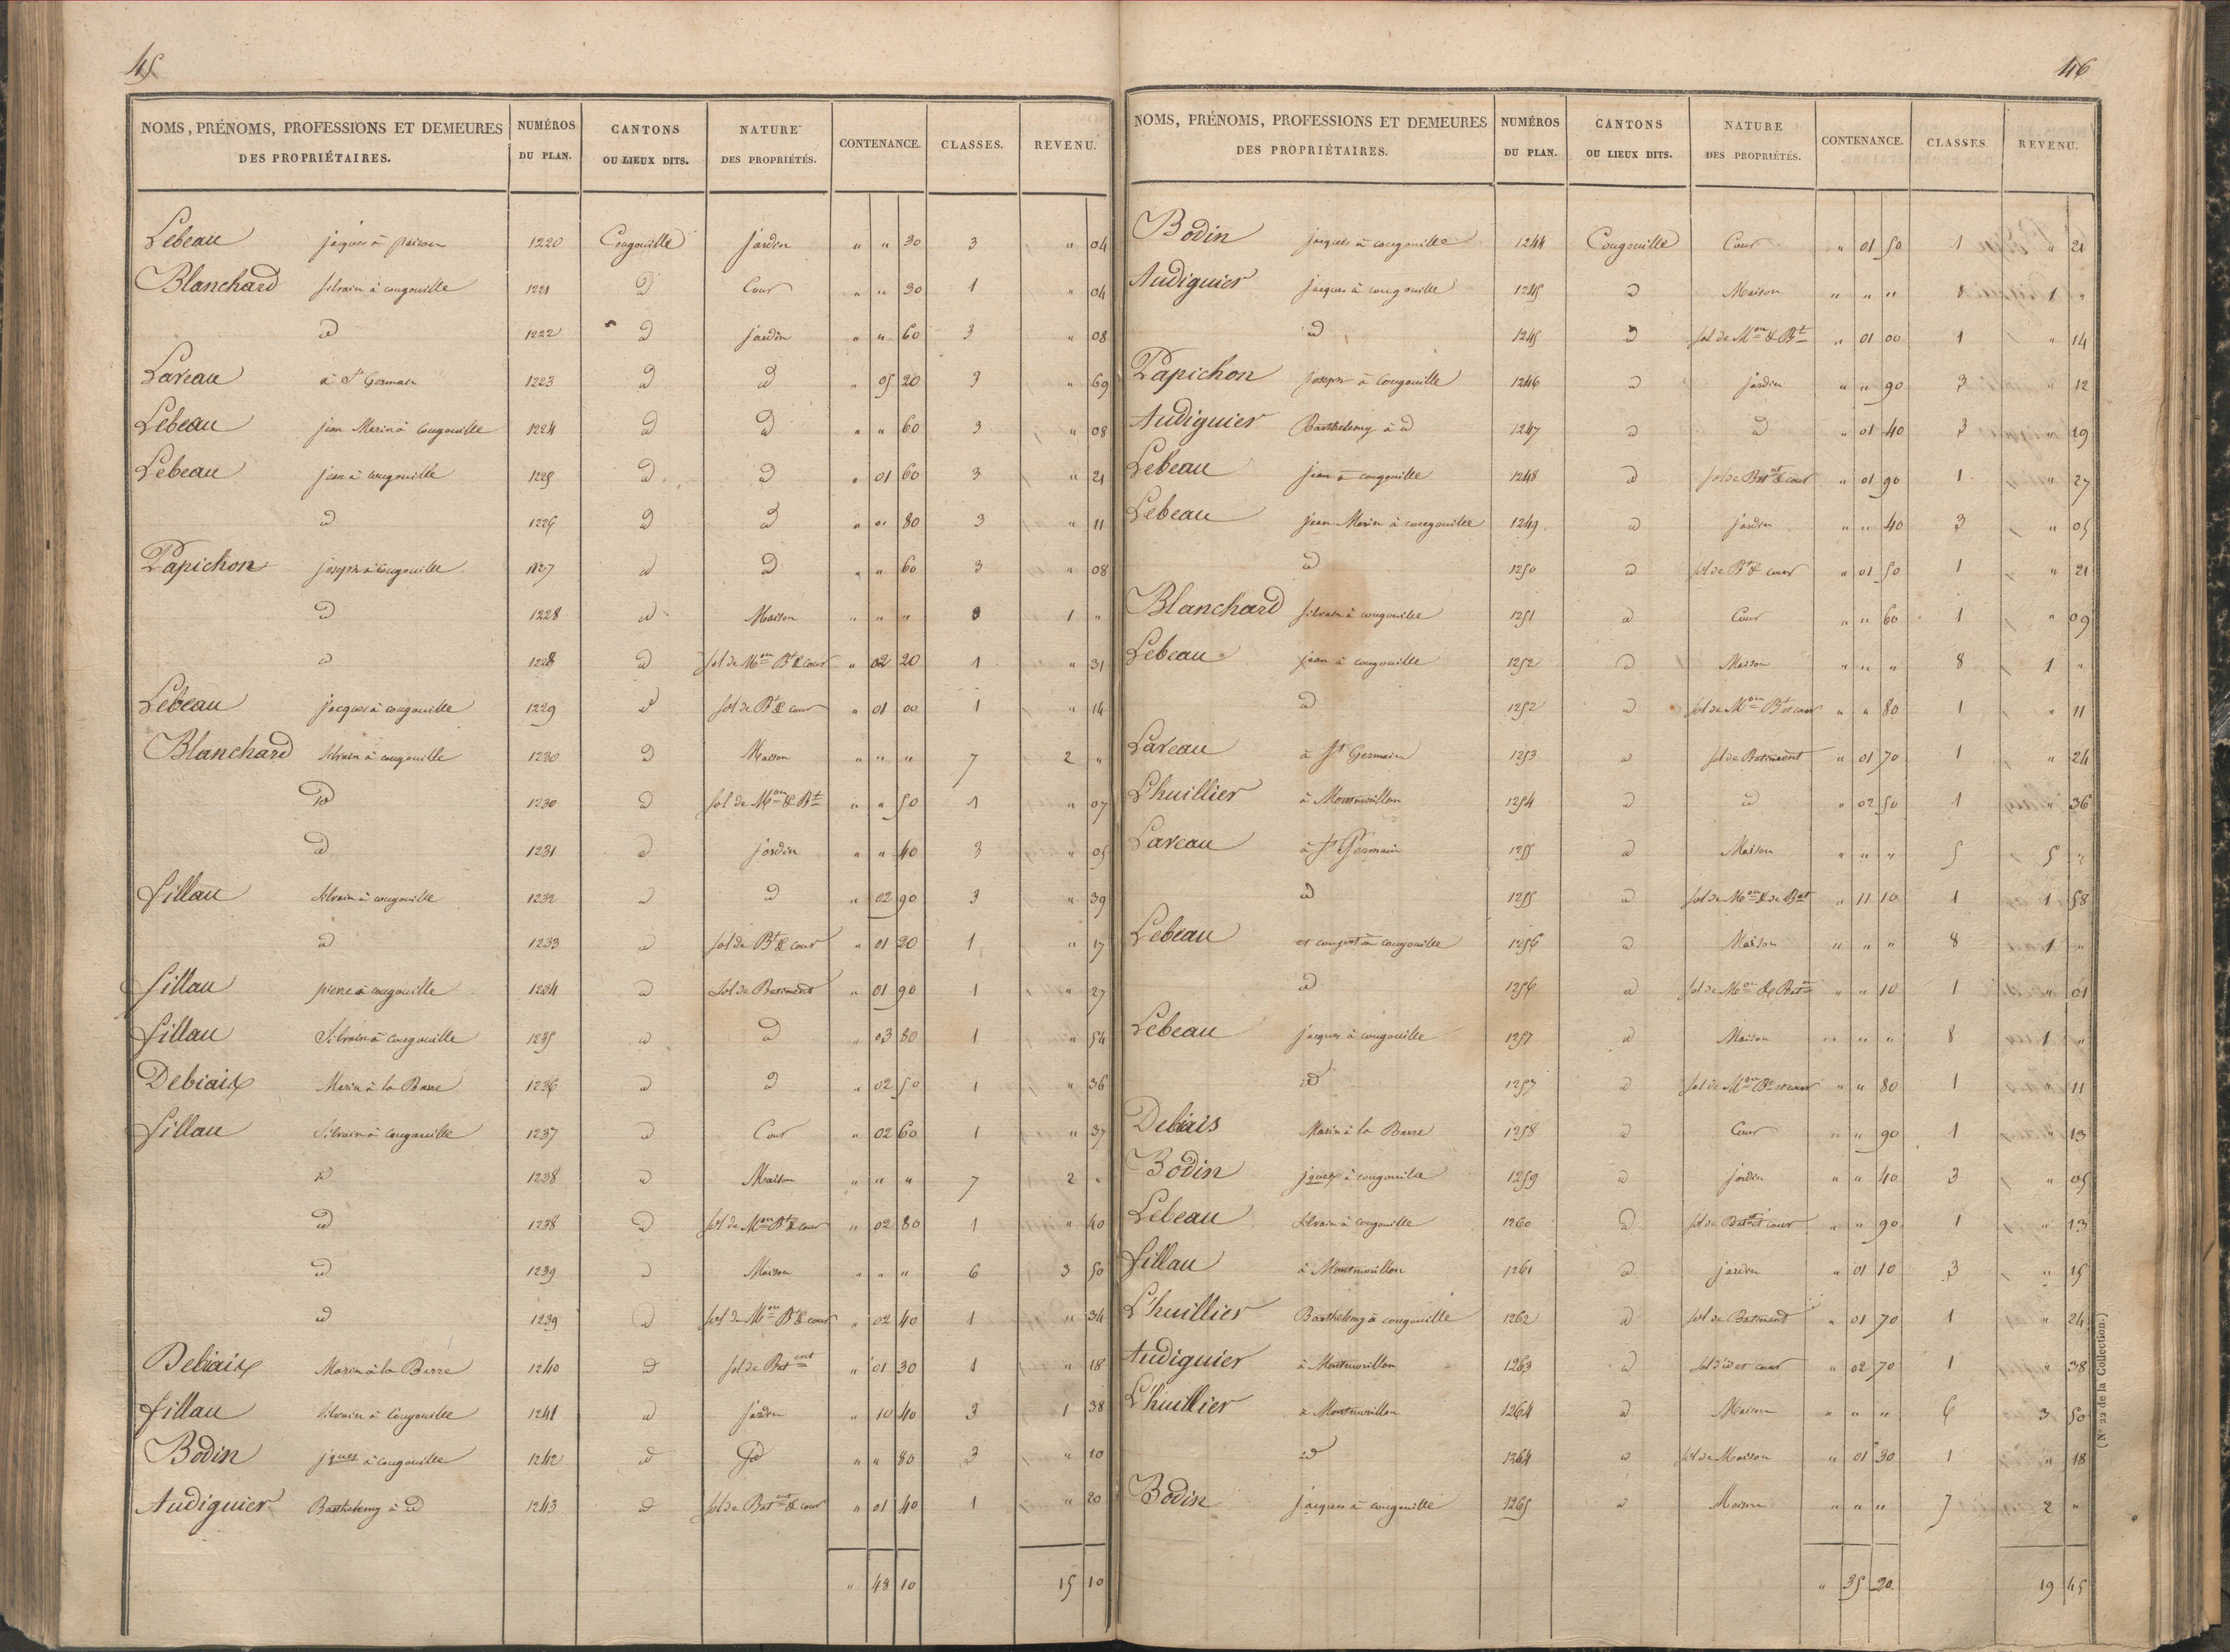 45
NOMS, PRÉNOMS, PROFESSIONS ET DEMEURES DES PROPRIÉTAIRES. NUMÉROS DU PLAN. CANTONS OU LIEUX DITS. NATURE DES PROPRIÉTÉS. CONTENANCE. CLASSES. REVENU.
Lebeau jacques à 1220 Cougouille jardin " " 30 3 " 04
Blanchard silvain à cougouille 1221 id Cour " " 30 1 " 04
id 1222 id jardin " " 60 3 " 08
Laveau à St Germain 1223 id id " 05 20 3 " 69
Lebeau jean Marin à cougouille 1224 id id " " 60 3 " 08
Lebeau jean à cougouille 1225 id id " 01 60 3 " 21
id 1226 id id " " 80 3 " 11
Papichon joseph à cougouille 1227 id id " " 60 3 " 08
id 1228 id Maison " " " 8 1 "
id 1228 id sol de Mon Bt & cour " 02 20 1 " 31
Lebeau jacques à cougouille 1229 id sol de Bt & cour " 01 00 1 " 14
Blanchard silvain à cougouille 1230 id Maison " " " 7 2 "
id 1230 id sol de Mon & Bt " " 50 1 " 07
id 1231 id jardin " " 40 3 " 05
fillau silvain à cougouille 1232 id id " 02 90 3 " 39
id 1233 id sol de Bt & cour " 01 20 1 " 17
fillau pierre à cougouille 1234 id sol de Batiment " 01 90 1 " 27
fillau Silvain à cougouille 1235 id id " 03 80 1 " 54
Debiaix Marin à la Barre 1236 id id " 02 50 1 " 36
fillau Silvain à cougouille 1237 id Cour " 02 60 1 " 37
id 1238 id Maison " " " 7 2 "
id 1238 id sol de Mon Bt & cour " 02 80 1 " 40
id 1239 id Maison " " " 6 3 50
id 1239 id sol de Mon Bt & cour " 02 40 1 " 34
Debiaix Marin à la Barre 1240 id sol de Batent " 01 30 1 " 18
fillau silvain à cougouille 1241 id jardin " 10 40 3 1 38
Bodin jques à cougouille 1242 id id " " 80 3 " 10
Audiguier Barthelemy à id 1243 id sol de Batnt & cour " 01 40 1 " 20
" 48 10 15 10
46
NOMS, PRÉNOMS, PROFESSIONS ET DEMEURES DES PROPRIÉTAIRES. NUMÉROS DU PLAN. CANTONS OU LIEUX DITS. NATURE DES PROPRIÉTÉS. CONTENANCE. CLASSES. REVENU.
Bodin jacques à cougouille 1244 Cougouille Cour " 01 50 1 " 21
Audiguier jacques à cougouille 1245 id Maison " " " 8 1 "
id 1245 id sol de Mon & Bt " 01 00 1 " 14
Papichon joseph à cougouille 1246 id jardin " " 90 3 " 12
Audiguier Barthelemy à id 1247 id id " 01 40 3 " 19
Lebeau jean à cougouille 1248 id sol de Batnt & cour " 01 90 1 " 27
Lebeau jean Marin à cougouille 1249 id jardin " " 40 3 " 05
id 1250 id sol de Bt & cour " 01 50 1 " 21
Blanchard silvain à cougouille 1251 id Cour " " 60 1 " 09
Lebeau jean à cougouille 1252 id Maison " " " 8 1 "
id 1252 id sol de Mon Bt et cour " " 80 1 " 11
Laveau à St Germain 1253 id sol de Batiment " 01 70 1 " 24
Lhuillier à Montmorillon 1254 id id " 02 50 1 " 36
Laveau à St Germain 1255 id Maison " " " 5 5 "
id 1255 id sol de Mon & de Bat " 11 10 1 1 58
Lebeau et à cougouille 1256 id Maison " " " 8 1 "
id 1256 id sol de Mon & Bat " " 10 1 " 01
Lebeau jacques à cougouille 1257 id Maison " " " 8 1 "
id 1257 id sol de Mon Bt et cour " " 80 1 " 11
Debiais Marin à la Barre 1258 id Cour " " 90 1 " 13
Bodin jques à 1259 id jardin " " 40 3 " 05
Lebeau silvain à cougouille 1260 id sol de Batnt et cour " " 90 1 " 13
fillau à Montmorillon 1261 id jardin " 01 10 3 " 15
L'huillier Barthelemy à cougouille 1262 id sol de Batiment " 01 70 1 " 24
Audiguier à Montmorillon 1263 id sol d'id et cour " 02 70 1 " 38
L'huillier à Montmorillon 1264 id Maison " " " 6 3 50
id 1264 id sol de Maison " 01 30 1 " 18
Bodin jacques à cougouille 1265 id Maison " " " 7 2 "
" 35 20 19 45
(N° 22 de la Collection.)